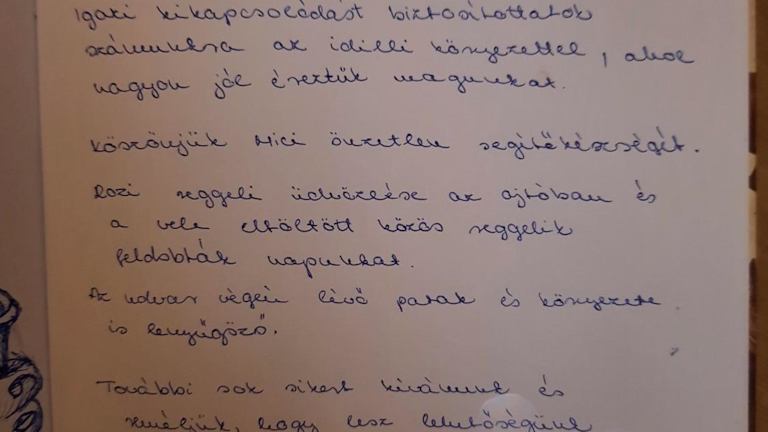 Igazi kikapcsolódást biztosítottatok
számunkra az idilli környezettel, ahol
nagyon jól éreztük magunkat.
Köszönjük Mici önzetlen segítőkészségét.
Rozi reggeli üdvözlése az ajtóban és
a vele eltöltött közös reggelik
feldobták napunkat.
Az udvar végén lévő patak és környezete
is lenyűgöző.
További sok sikert kívánunk és
reméljük, hogy lesz lehetőségünk